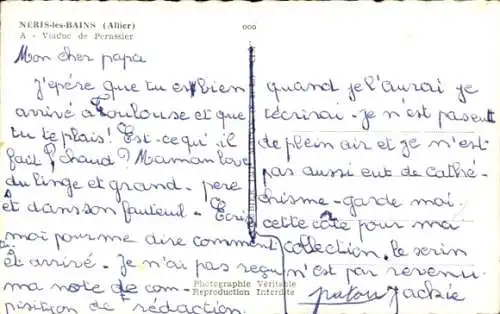 NERIS-les-BAINS (Allier)
A - Viaduc de Perassier
Mon cher papa
J'epére que tu es bien
arrivé a Toulouse et que
tu te plais! Est-ce qu'il
fait chaud? Maman lave
du linge et grand-pere
et dans son fauteuil. Écris
moi pour me dire comment
et arrivé. Je n'ai pas reçu
ma note de com-
position de rédaction.
quand je l'aurai je
t'écrirai. Je n'est pas eut
de plein air et je n'est
pas aussi eut de cathé-
chisme. garde moi
cette carte pour ma
collection. le serin
n'est pas revenu.
Jackie
Photographie Véritable
Reproduction Interdite